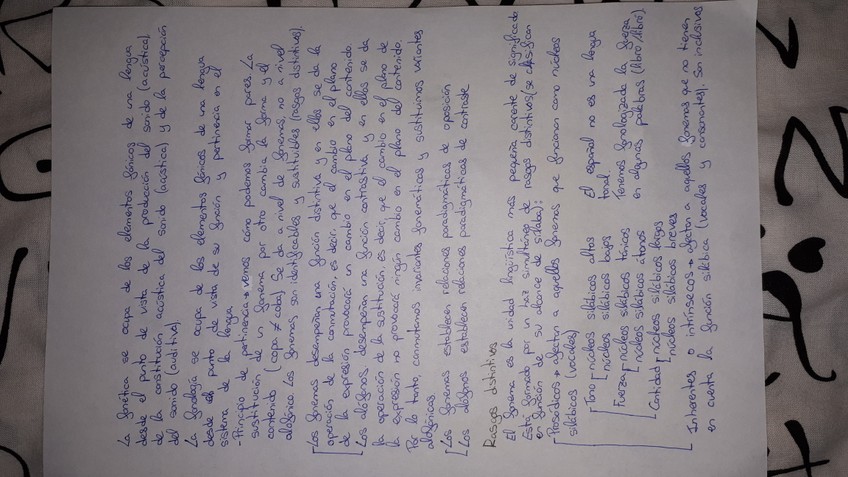 La fonética se ocupa de los elementos fónicos de una lengua
desde el punto de vista de la producción del sonido (acústica),
de la constitución acústica del sonido (acústica) y de la percepción
del sonido (auditiva)
La fonología se ocupa de los elementos fónicos de una lengua
desde el punto de vista de su función y pertinencia en el
sistema de la lengua
- Principio de pertinencia → vemos cómo podemos formar pares. La
sustitución de un fonema por otro cambia la forma y el
contenido (copa ≠ coba). Se da a nivel de fonemas, no a nivel
alofónico. Los fonemas son identificables y sustituibles (rasgos distintivos).
Los fonemas desempeñan una función distintiva y en ellos se da la
operación de la conmutación, es decir, que el cambio en el plano
de la expresión provocará un cambio en el plano del contenido.
Los alófonos desempeñan una función contrastiva y en ellos se da
la operación de la sustitución, es decir, que el cambio en el plano de
la expresión no provocará ningún cambio en el plano del contenido.
Por lo tanto conmutamos invariantes fonemáticas y sustituimos variantes
alofónicas.
Los fonemas establecen relaciones paradigmáticas de oposición
Los alófonos establecen relaciones paradigmáticas de contraste
Rasgos distintivos
El fonema es la unidad lingüística más pequeña carente de significado
Está formado por un haz simultáneo de rasgos distintivos (se clasifican
en función de su alcance de sílaba):
- Prosódicos → afectan a aquellos fonemas que funcionan como núcleos
silábicos (vocales)
Tono núcleos silábicos altos
núcleos silábicos bajos
El español no es una lengua
tonal.
Fuerza núcleos silábicos tónicos
núcleos silábicos átonos
Tenemos fonologizada la fuerza
en algunas palabras (libro/libró).
Cantidad núcleos silábicos largos
núcleos silábicos breves
- Inherentes o intrínsecos → afectan a aquellos fonemas que no tienen
en cuenta la función silábica (vocales y consonantes). Son inclusivos